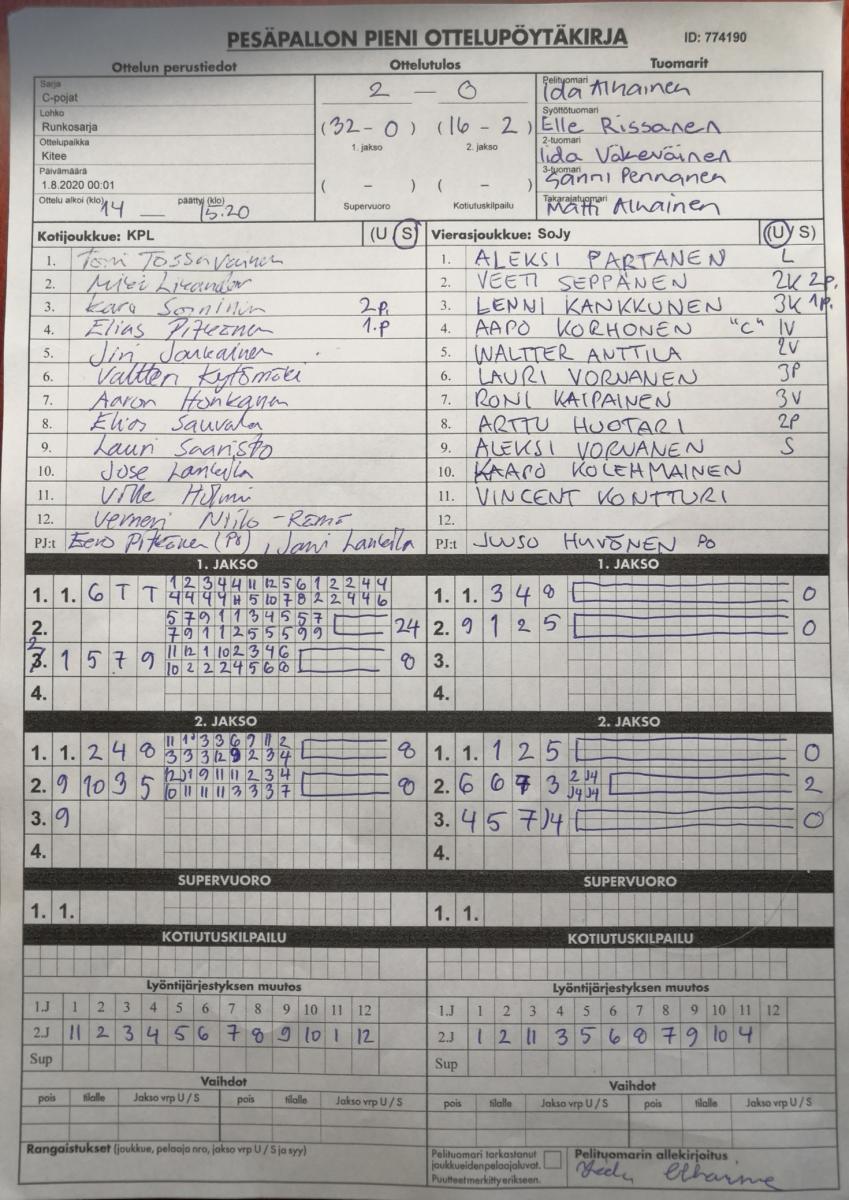 PESÄPALLON PIENI OTTELUPÖYTÄKIRJA ID: 774190
Ottelun perustiedot Ottelutulos Tuomarit
Sarja
C-pojat
Lohko
Runkosarja
Ottelupaikka
Kitee
Päivämäärä
1.8.2020 00:01
Ottelu alkoi (klo) 14 päättyi (klo) 15.20
2 - 0
(32 - 0) (16 - 2)
1. jakso 2. jakso
( - ) ( - )
Supervuoro Kotiutuskilpailu
Pelituomari
Ida Alhainen
Syöttötuomari
Elle Rissanen
2-tuomari
Iida Väkeväinen
3-tuomari
Sanni Pennanen
Takarajatuomari
Matti Alhainen
Kotijoukkue: KPL (U S)
1. Toni Tossavainen
2.
3. 2.p.
4. Elias Pitkänen 1.p
5. Joukainen
6. Valtteri Kytömäki
7. Aaron Honkanen
8. Elias Sauvala
9. Lauri Saaristo
10. Jose Lankila
11. Ville
12. Verneri Niilo-Rämä
PJ:t Eero Pitkänen (PJ), Jani Lankila
Vierasjoukkue: SoJy (U S)
1. ALEKSI PARTANEN L
2. VEETI SEPPÄNEN 2K 2p.
3. LENNI KANKKUNEN 3K 1p.
4. AAPO KORHONEN "C" 1V
5. WALTTER ANTTILA 2V
6. LAURI VORNANEN 3P
7. RONI KAIPAINEN 3V
8. ARTTU HUOTARI 2P
9. ALEKSI VORNANEN S
10. KAAPO KOLEHMAINEN
11. VINCENT KONTTURI
12.
PJ:t JUUSO HUVÖNEN PO
1. JAKSO
1. 1. 6 T T 1 2 3 4 4 11 12 5 6 1 2 2 4 4
4 4 4 4 11 5 10 7 8 2 2 4 4 6
2. 5 7 9 1 1 3 4 5 5 7 24
7 9 1 1 2 5 5 5 9 9
3. 1 5 7 9 11 12 1 10 2 3 4 6 8
10 2 2 2 4 5 6 8
4.
1. JAKSO
1. 1. 3 4 8 0
2. 9 1 2 5 0
3.
4.
2. JAKSO
1. 1. 2 4 8 11 1 3 3 6 9 11 2 8
3 3 3 12 9 2 3 4
2. 9 10 3 5 12 1 9 11 11 2 3 4 8
10 11 11 11 3 3 3 7
3. 9
4.
2. JAKSO
1. 1. 1 2 5 0
2. 6 6 7 3 2 J4 2
J4 J4
3. 4 5 7 J4 0
4.
SUPERVUORO
1. 1.
SUPERVUORO
1. 1.
KOTIUTUSKILPAILU
KOTIUTUSKILPAILU
Lyöntijärjestyksen muutos
1.J 1 2 3 4 5 6 7 8 9 10 11 12
2.J 11 2 3 4 5 6 7 8 9 10 1 12
Sup
Lyöntijärjestyksen muutos
1.J 1 2 3 4 5 6 7 8 9 10 11 12
2.J 1 2 11 3 5 6 8 7 9 10 4
Sup
Vaihdot
pois tilalle Jakso vrp U / S pois tilalle Jakso vrp U / S
Vaihdot
pois tilalle Jakso vrp U / S pois tilalle Jakso vrp U / S
Rangaistukset (joukkue, pelaaja nro, jakso vrp U / S ja syy)
Pelituomari tarkastanut
joukkueiden pelaajaluvat.
Puutteet merkitty erikseen.
Pelituomarin allekirjoitus